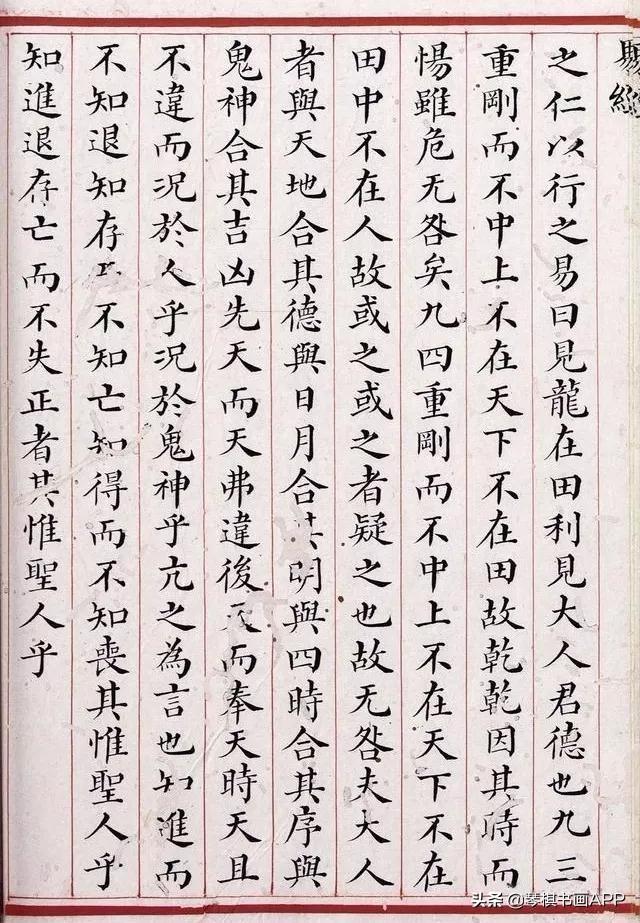 之仁以行之易曰見龍在田利見大人君德也九三
重剛而不中上不在天下不在田故乾乾因其時而
惕雖危无咎矣九四重剛而不中上不在天下不在
田中不在人故或之或之者疑之也故无咎夫大人
者與天地合其德與日月合其明與四時合其序與
鬼神合其吉凶先天而天弗違後天而奉天時天且
不違而況於人乎況於鬼神乎亢之為言也知進而
不知退知存而不知亡知得而不知喪其惟聖人乎
知進退存亡而不失正者其惟聖人乎
头条 @琴棋书画APP